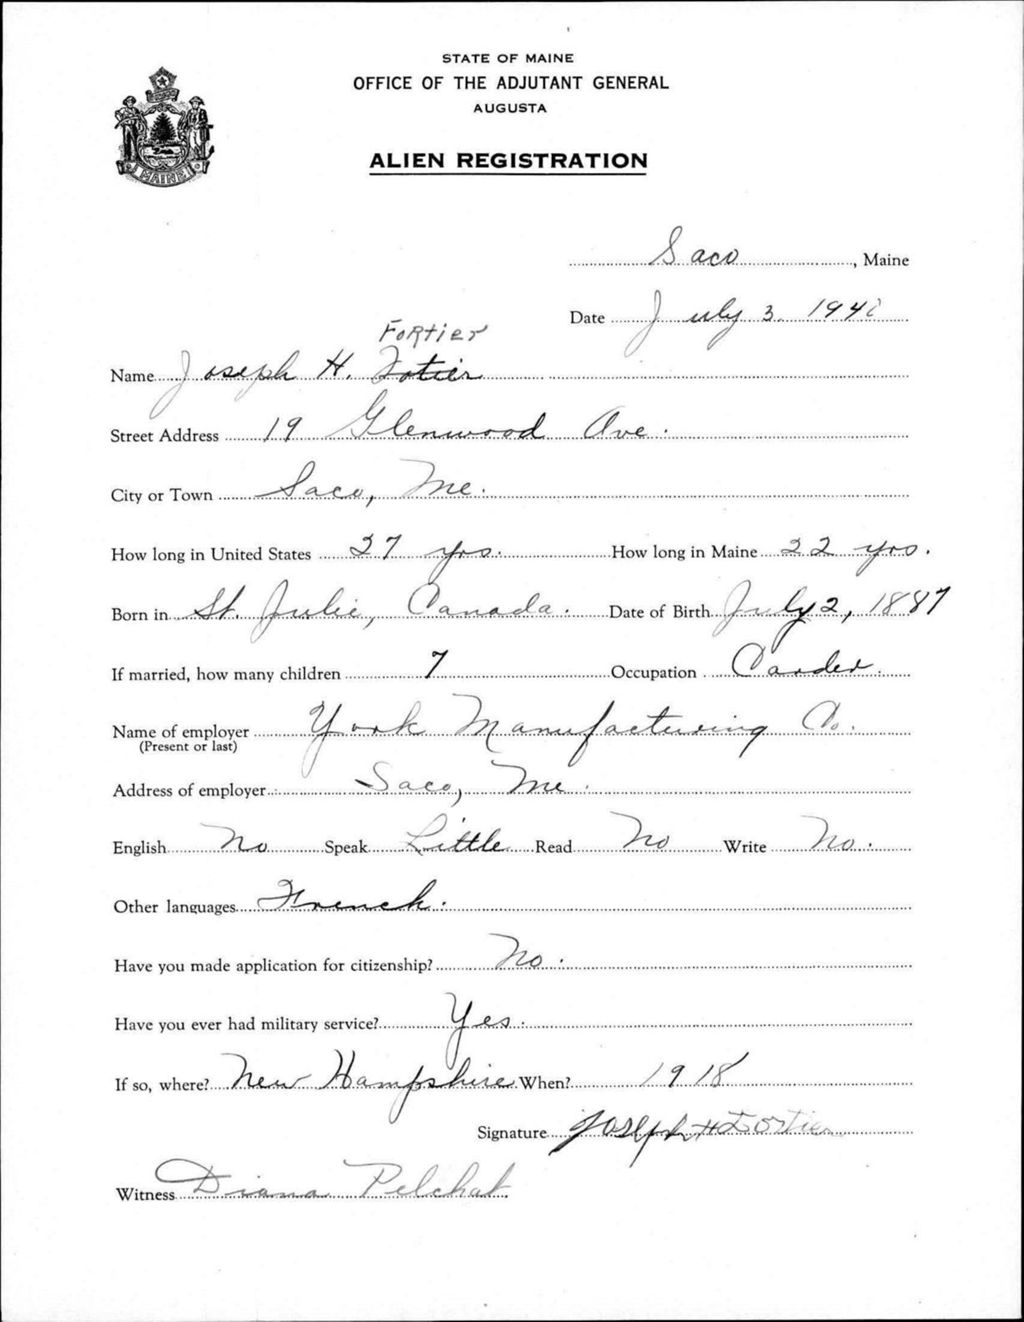 STATE OF MAINE
OFFICE OF THE ADJUTANT GENERAL
AUGUSTA
ALIEN REGISTRATION
MAINE
Saco, Maine
Date July 3, 1940
Fortier
Name Joseph H. Fotier
Street Address 19 Glenwood Ave.
City or Town Saco, Me.
How long in United States 37 yrs. How long in Maine 22 yrs.
Born in St. Julie, Canada. Date of Birth July 2, 1887
If married, how many children 7 Occupation Carder.
Name of employer York Manufacturing Co.
(Present or last)
Address of employer Saco, Me.
English No Speak Little Read No Write No.
Other languages French.
Have you made application for citizenship? No.
Have you ever had military service? Yes.
If so, where? New Hampshire When? 1918
Signature Joseph H Fortier
Witness Diana Pelchat